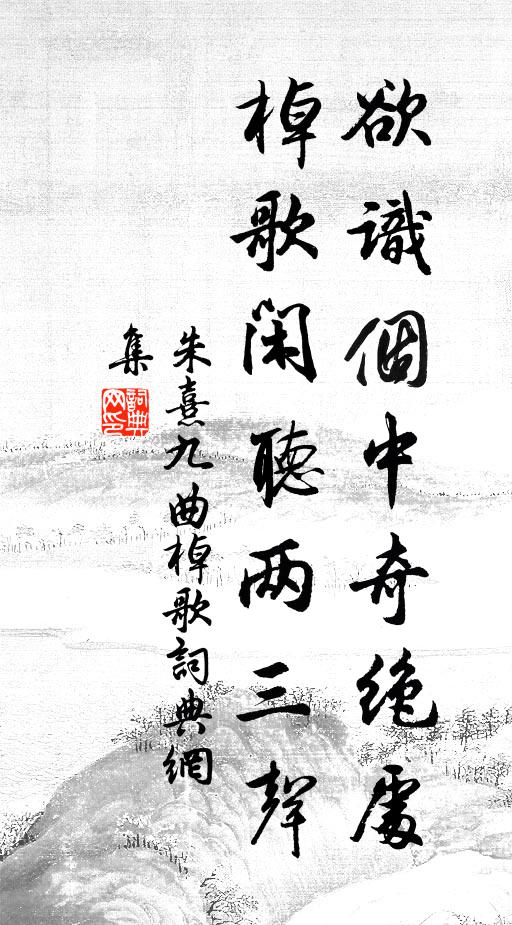 欲識個中奇絶處
棹歌閑聽两三聲
朱熹九曲棹歌詞典網
集
詞典网印